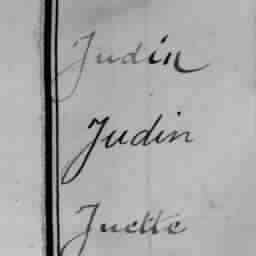 Judin
Judin
Juette